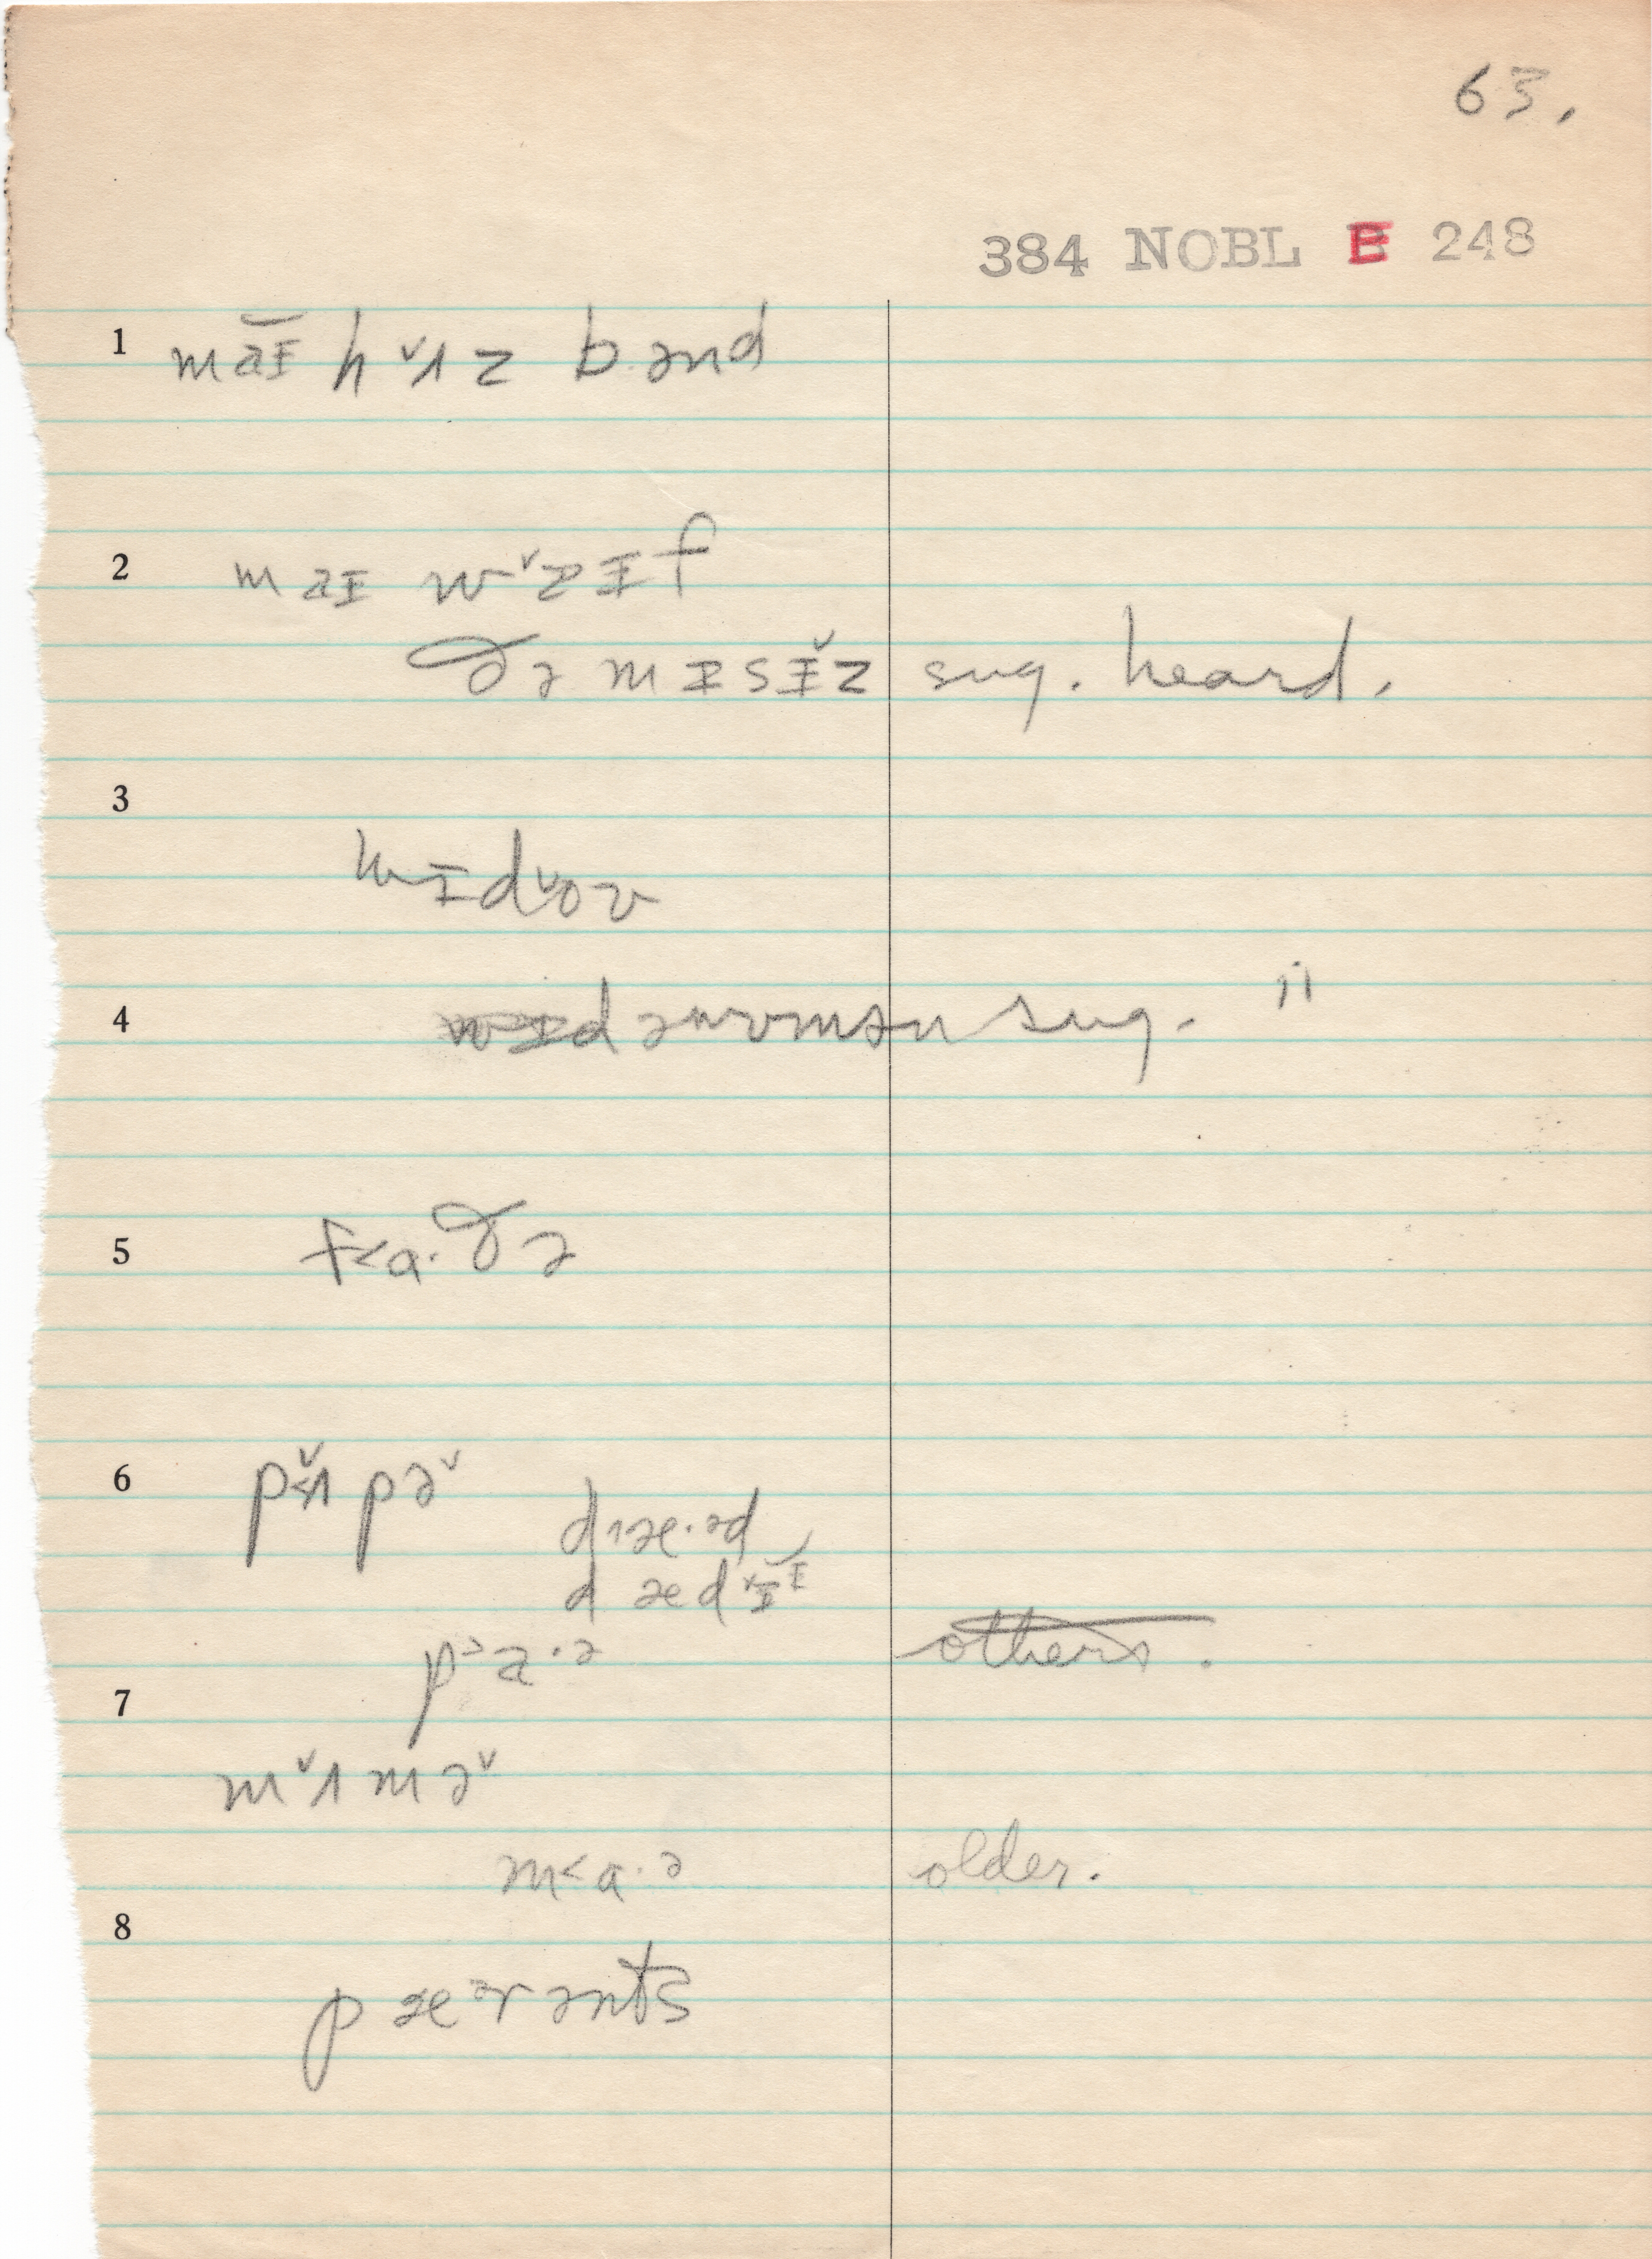 63.
384 NOBL E 248
1 maɪ̆ h˅ʌz bənd
2 maɪ w˅aɪf
ðə mɪsɪ̌z sug. heard.
3
wɪd˅oʊ
4 sug. "
5 f<a·ðə
6 p˅ʌpə˅
d˄æ·əd
dæd˅ɪɪ
p>a·ə others.
7
m˅ʌmə˅
m<a·ə older.
8
pæᵊrənts